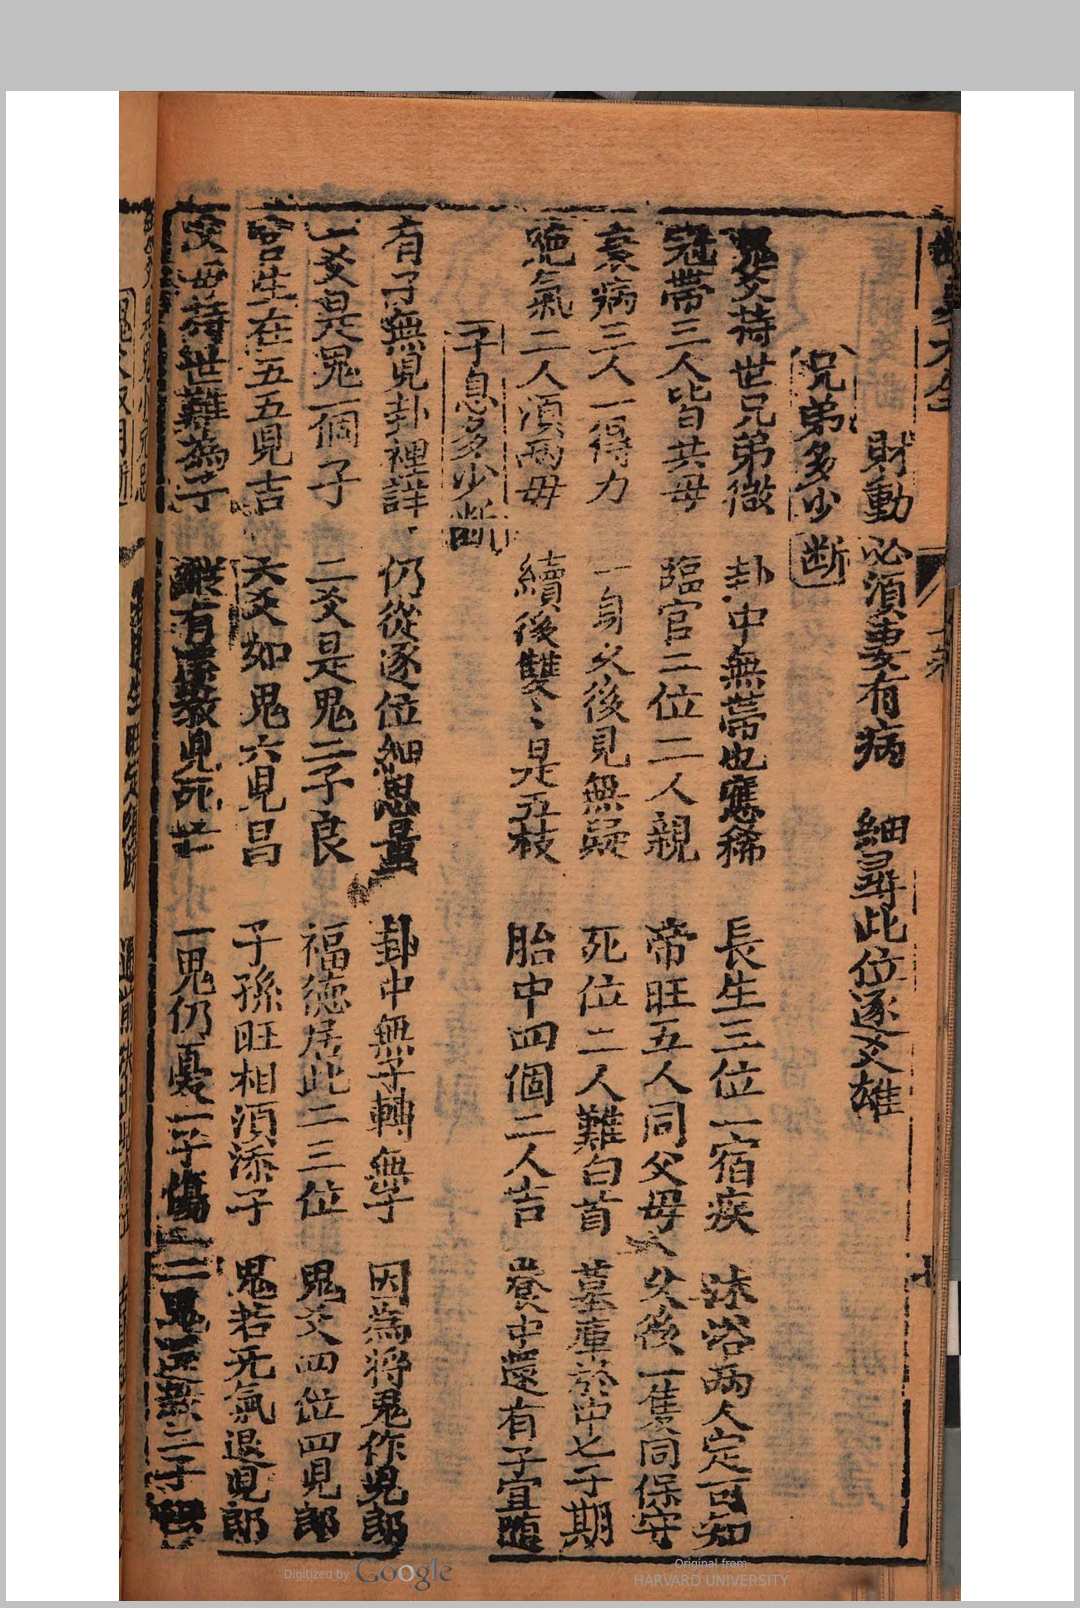 財動必須妻有病　細尋此位逐爻雄
兄弟多少断
鬼爻持世兄弟微　卦中無蒂也應稀　長生三位一宿疾　沐浴兩人定可知
冠帶三人皆共母　臨官二位二人親　帝旺五人同父母　父後一隻同保守
衰病三人一得力　一身父後見無疑　死位二人難白首　墓庫於中七子期
絶氣二人須兩母　續後雙〻是五枝　胎中四個二人吉　養中還有子宜隨
子息多少断
有子無見卦裡詳　仍從逐位細思量　卦中無子轉無子　因為將鬼作兒郎
一爻是鬼一個子　二爻是鬼二子良　福德居此二三位　鬼爻四位四見郎
宮生在五五見吉　六爻如鬼六見昌　子孫旺相須添子　鬼若无氣退見郎
父母持世難為子　縱有 教見死亡　一鬼仍憂一子傷　二鬼 二子
Digitized by Google
Original from
HARVARD UNIVERSITY